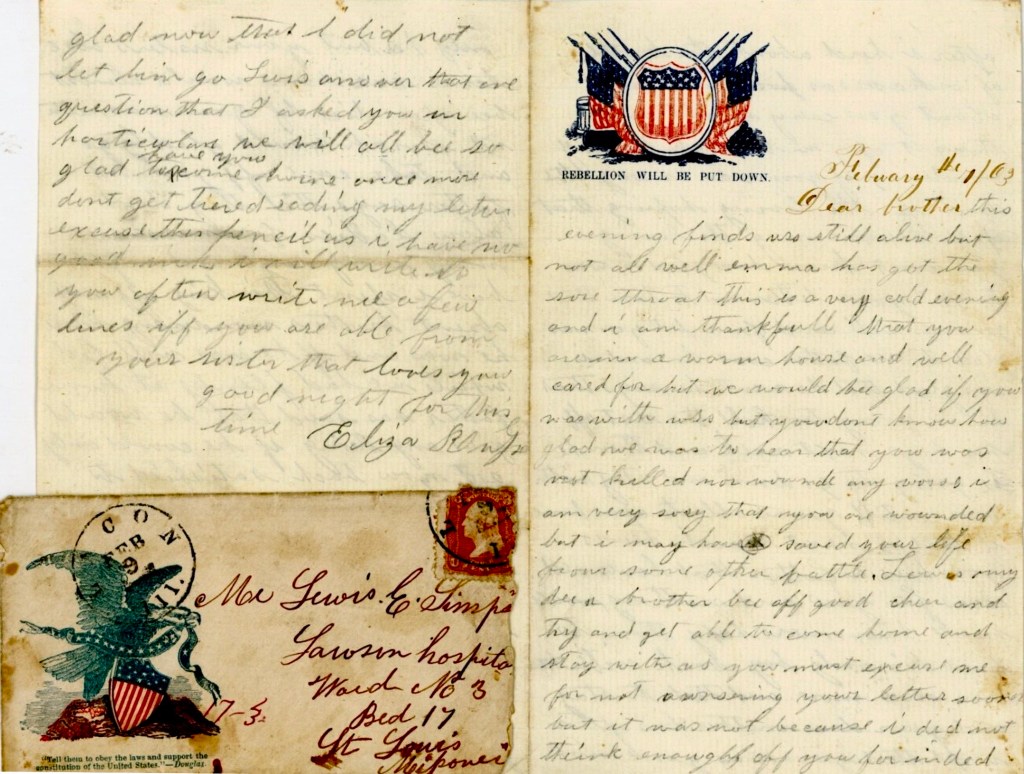 glad now that I did not
let him go Lewis answer that one
question that I asked you in
particular we will all bee so
glad to have you
come home once more
dont get tiered reading my letter
excuse this pencil as i have no
good ink i will write to
you often write me a few
lines iff you are able from
your sister that loves you
good night for this
time Eliza
REBELLION WILL BE PUT DOWN.
February the 1/63
Dear brother this
evening finds uss still alive but
not all well emma has got the
sore throat this is a very cold evening
and i am thankfull that you
are in a warm house and well
cared for but we would bee glad if you
was with uss but you dont know how
glad we was to hear that you was
not killed nor wounde any worse i
am very sory that you are wounded
but i may have saved your life
from some other battle. Lewis my
deer brother bee off good cheer and
try and get able to come home and
stay with us you must excuse me
for not awnsering your letter sooner
but it was not because i did not
think enought off you for inded
CON
FEB
9
Mr Lewis. E. Simps
Lawson hospita
Ward No 3
Bed 17
St Louis
Missouri
"Tell them to obey the laws and support the
constitution of the United States."—Douglas